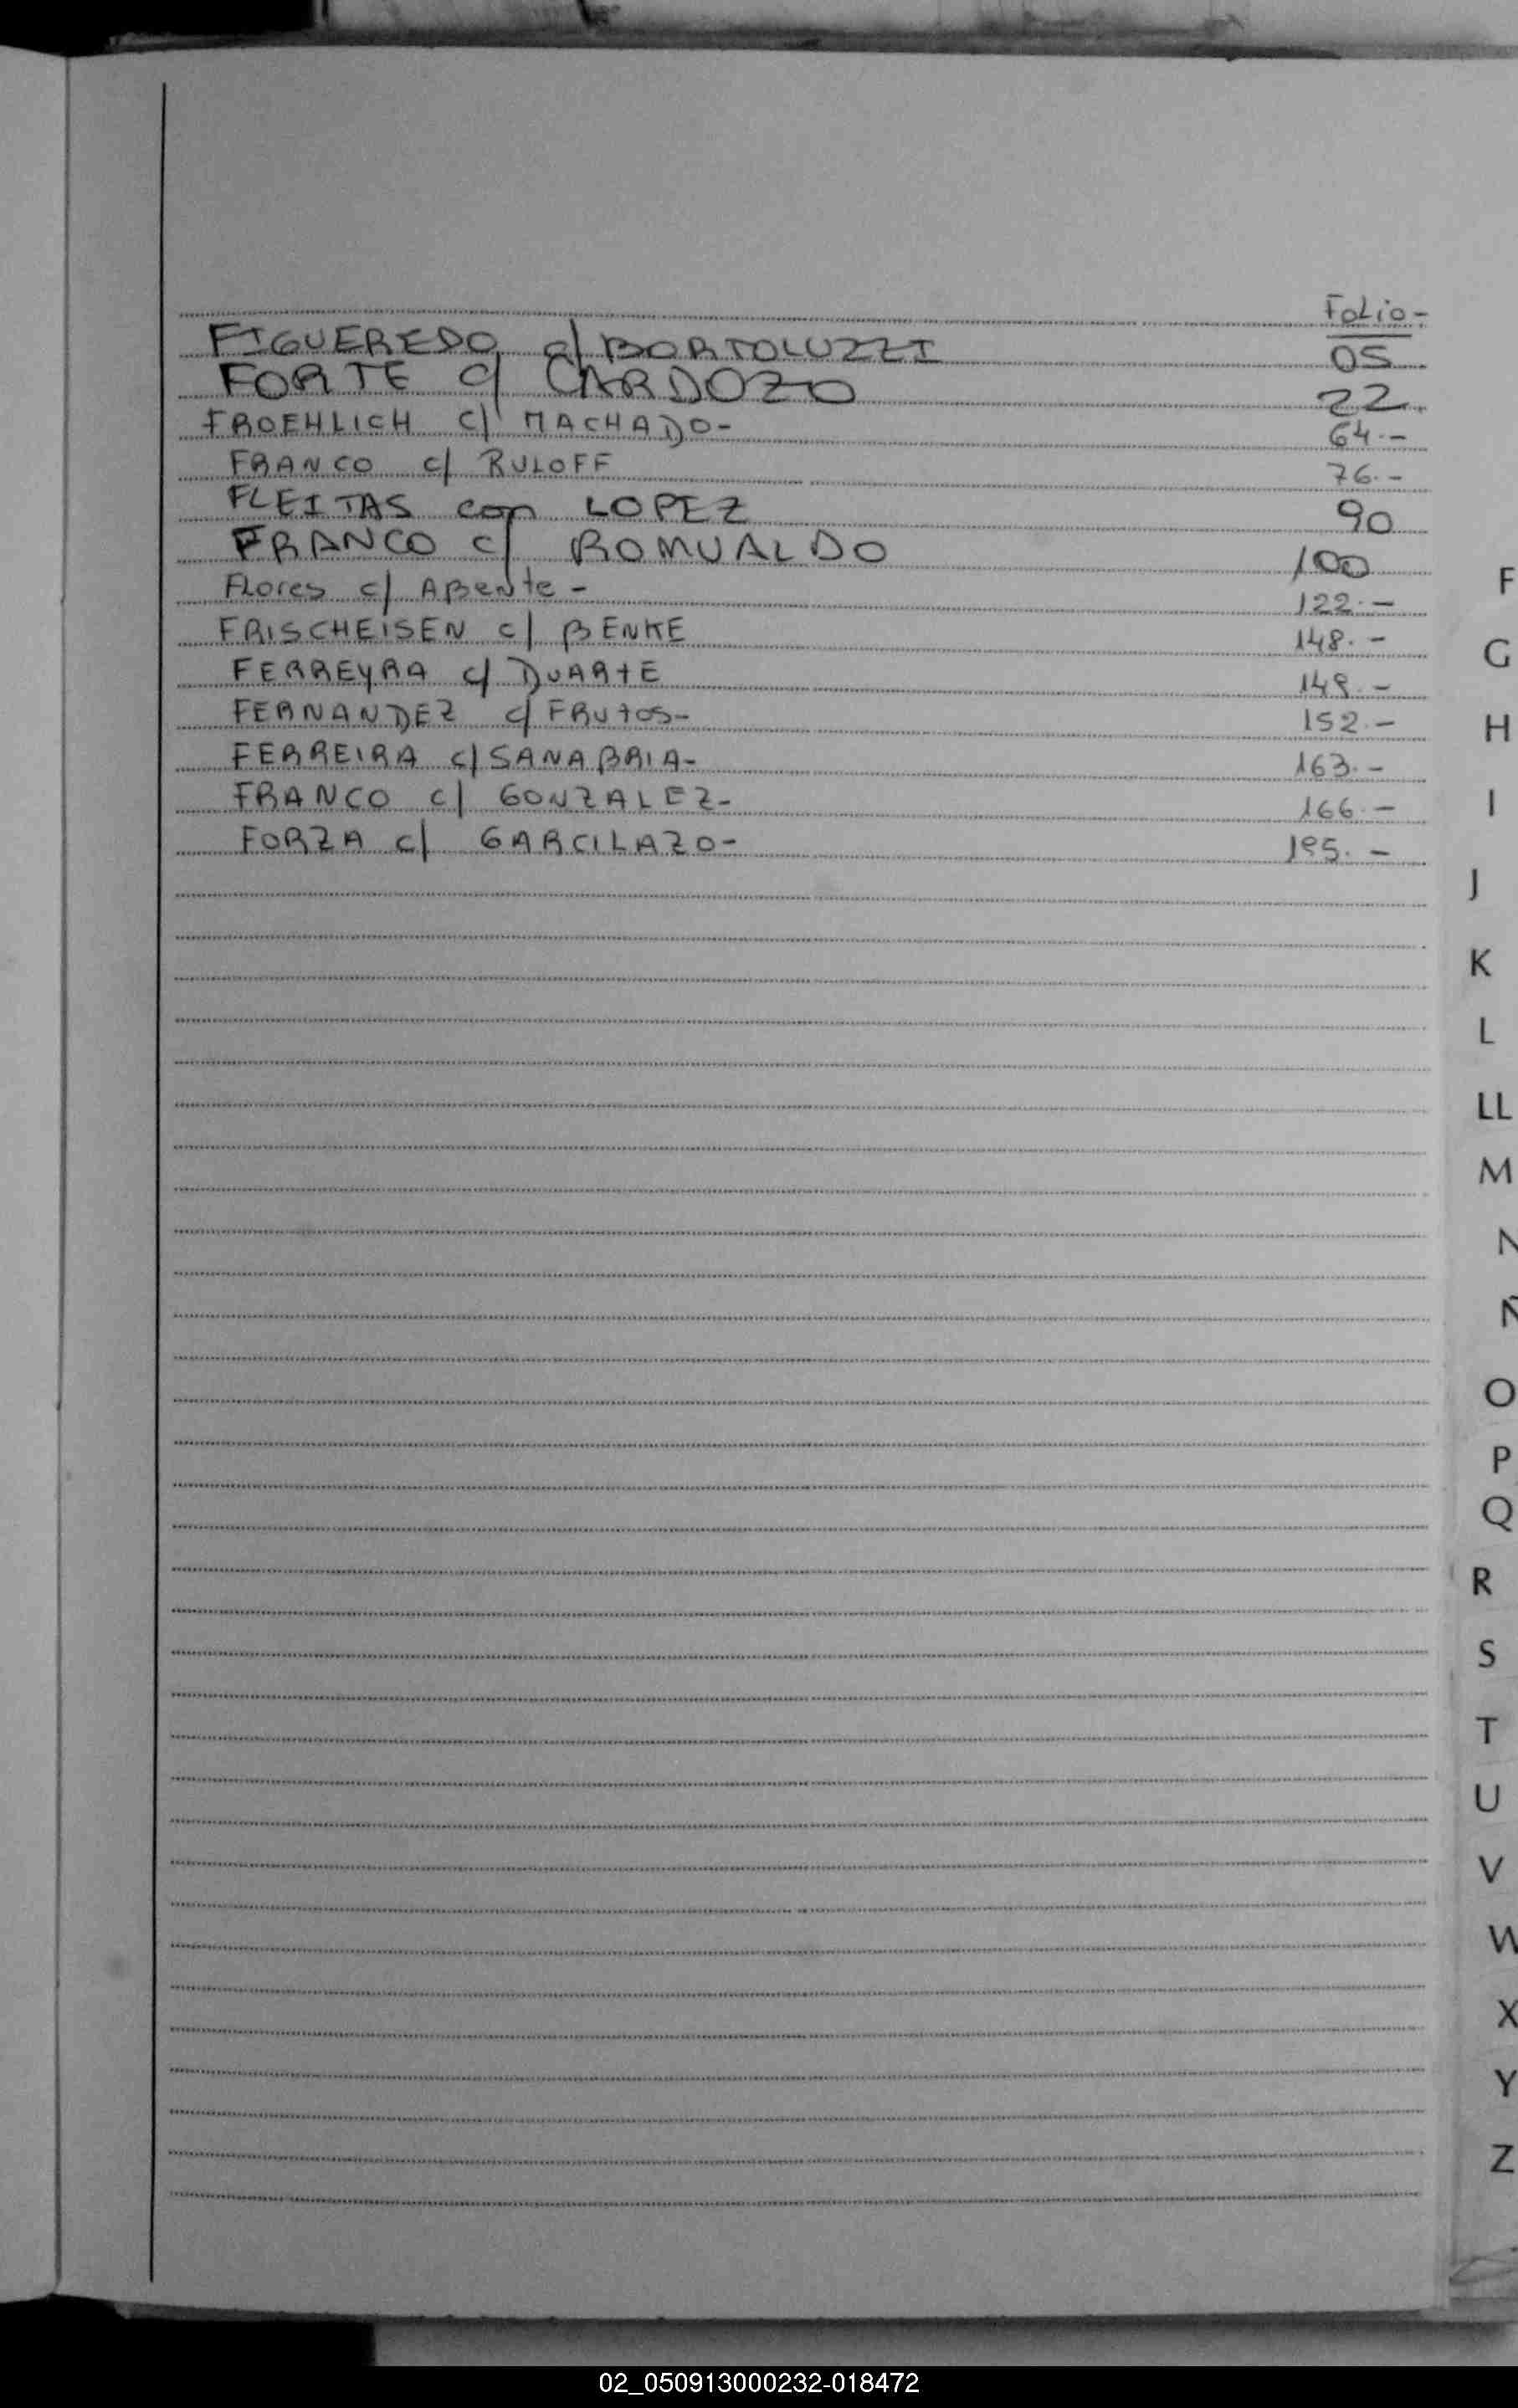 Folio-
FIGUEREDO c/ BORTOLUZZI 05
FORTE c/ CARDOZO 22
FROEHLICH c/ MACHADO- 64.-
FRANCO c/ RULOFF 76.-
FLEITAS con LOPEZ 90
FRANCO c/ ROMUALDO 100
Flores c/ ABente - 122.-
FRISCHEISEN c/ BENKE 148.-
FERREYRA c/ DUARtE 149.-
FERNANDEZ c/ FRUtOS- 152.-
FERREIRA c/ SANABRIA- 163.-
FRANCO c/ GONZALEZ- 166.-
FORZA c/ GARCILAZO- 195.-
F
G
H
I
J
K
L
LL
M
N
Ñ
O
P
Q
R
S
T
U
V
W
X
Y
Z
02_050913000232-018472